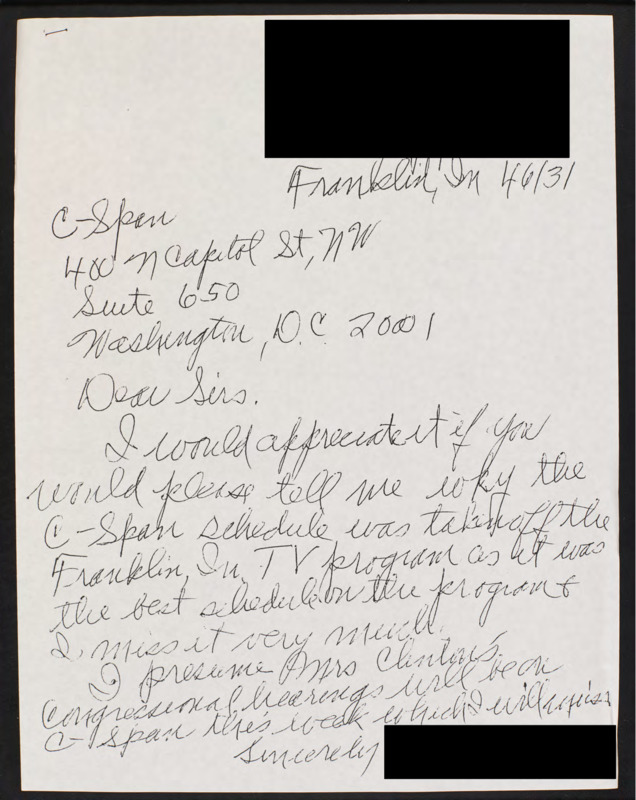 Franklin, In 46131
C-Span
400 N Capitol St, NW
Suite 650
Washington, D.C. 20001
Dear Sirs.
I would appreciate it if you
would please tell me why the
C-Span schedule was taken off the
Franklin, In. TV program as it was
the best schedule on the program &
I miss it very much.
I presume Mrs Clinton's
Congressional hearings will be on
C-Span this week which I will miss
Sincerely